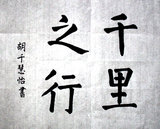 千里
之行
胡千慧怡書